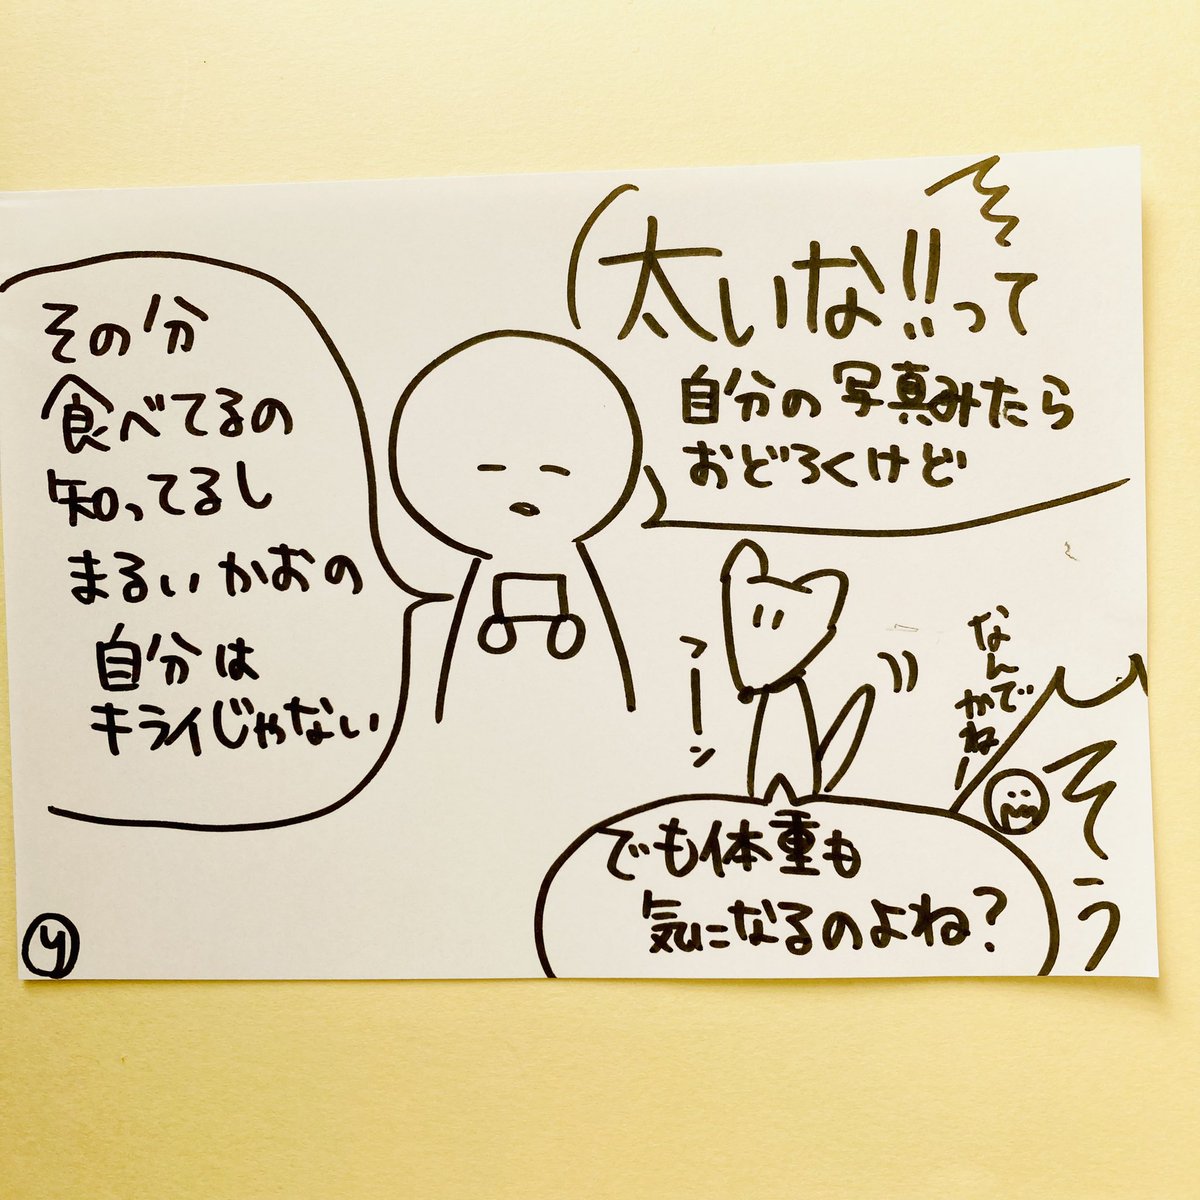 太いな!!って
自分の写真みたら
おどろくけど
その分
食べてるの
知ってるし
まるいかおの
自分は
キライじゃない
フーン
でも体重も
気になるのよね?
そう
なんで
かねー